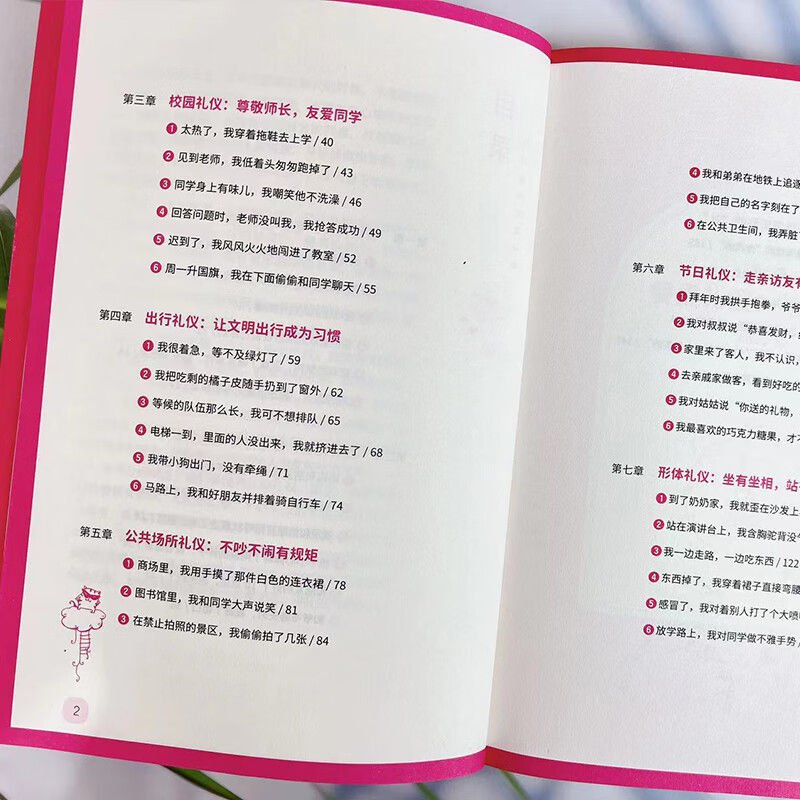 第三章 校园礼仪：尊敬师长，友爱同学
1 太热了，我穿着拖鞋去上学 / 40
2 见到老师，我低着头匆匆跑掉了 / 43
3 同学身上有味儿，我嘲笑他不洗澡 / 46
4 回答问题时，老师没叫我，我抢答成功 / 49
5 迟到了，我风风火火地闯进了教室 / 52
6 周一升国旗，我在下面偷偷和同学聊天 / 55
第四章 出行礼仪：让文明出行成为习惯
1 我很着急，等不及绿灯了 / 59
2 我把吃剩的橘子皮随手扔到了窗外 / 62
3 等候的队伍那么长，我可不想排队 / 65
4 电梯一到，里面的人没出来，我就挤进去了 / 68
5 我带小狗出门，没有牵绳 / 71
6 马路上，我和好朋友并排着骑自行车 / 74
第五章 公共场所礼仪：不吵不闹有规矩
1 商场里，我用手摸了那件白色的连衣裙 / 78
2 图书馆里，我和同学大声说笑 / 81
3 在禁止拍照的景区，我偷偷拍了几张 / 84
2
4 我和弟弟在地铁上追逐
5 我把自己的名字刻在了
6 在公共卫生间，我弄脏
第六章 节日礼仪：走亲访友有
1 拜年时我拱手抱拳，爷爷
2 我对叔叔说“恭喜发财，
3 家里来了客人，我不认识，
4 去亲戚家做客，看到好吃的
5 我对姑姑说“你送的礼物，
6 我最喜欢的巧克力糖果，才
第七章 形体礼仪：坐有坐相，站
1 到了奶奶家，我就歪在沙发上
2 站在演讲台上，我含胸驼背没
3 我一边走路，一边吃东西 / 122
4 东西掉了，我穿着裙子直接弯腰
5 感冒了，我对着别人打了个大喷
6 放学路上，我对同学做不雅手势 /